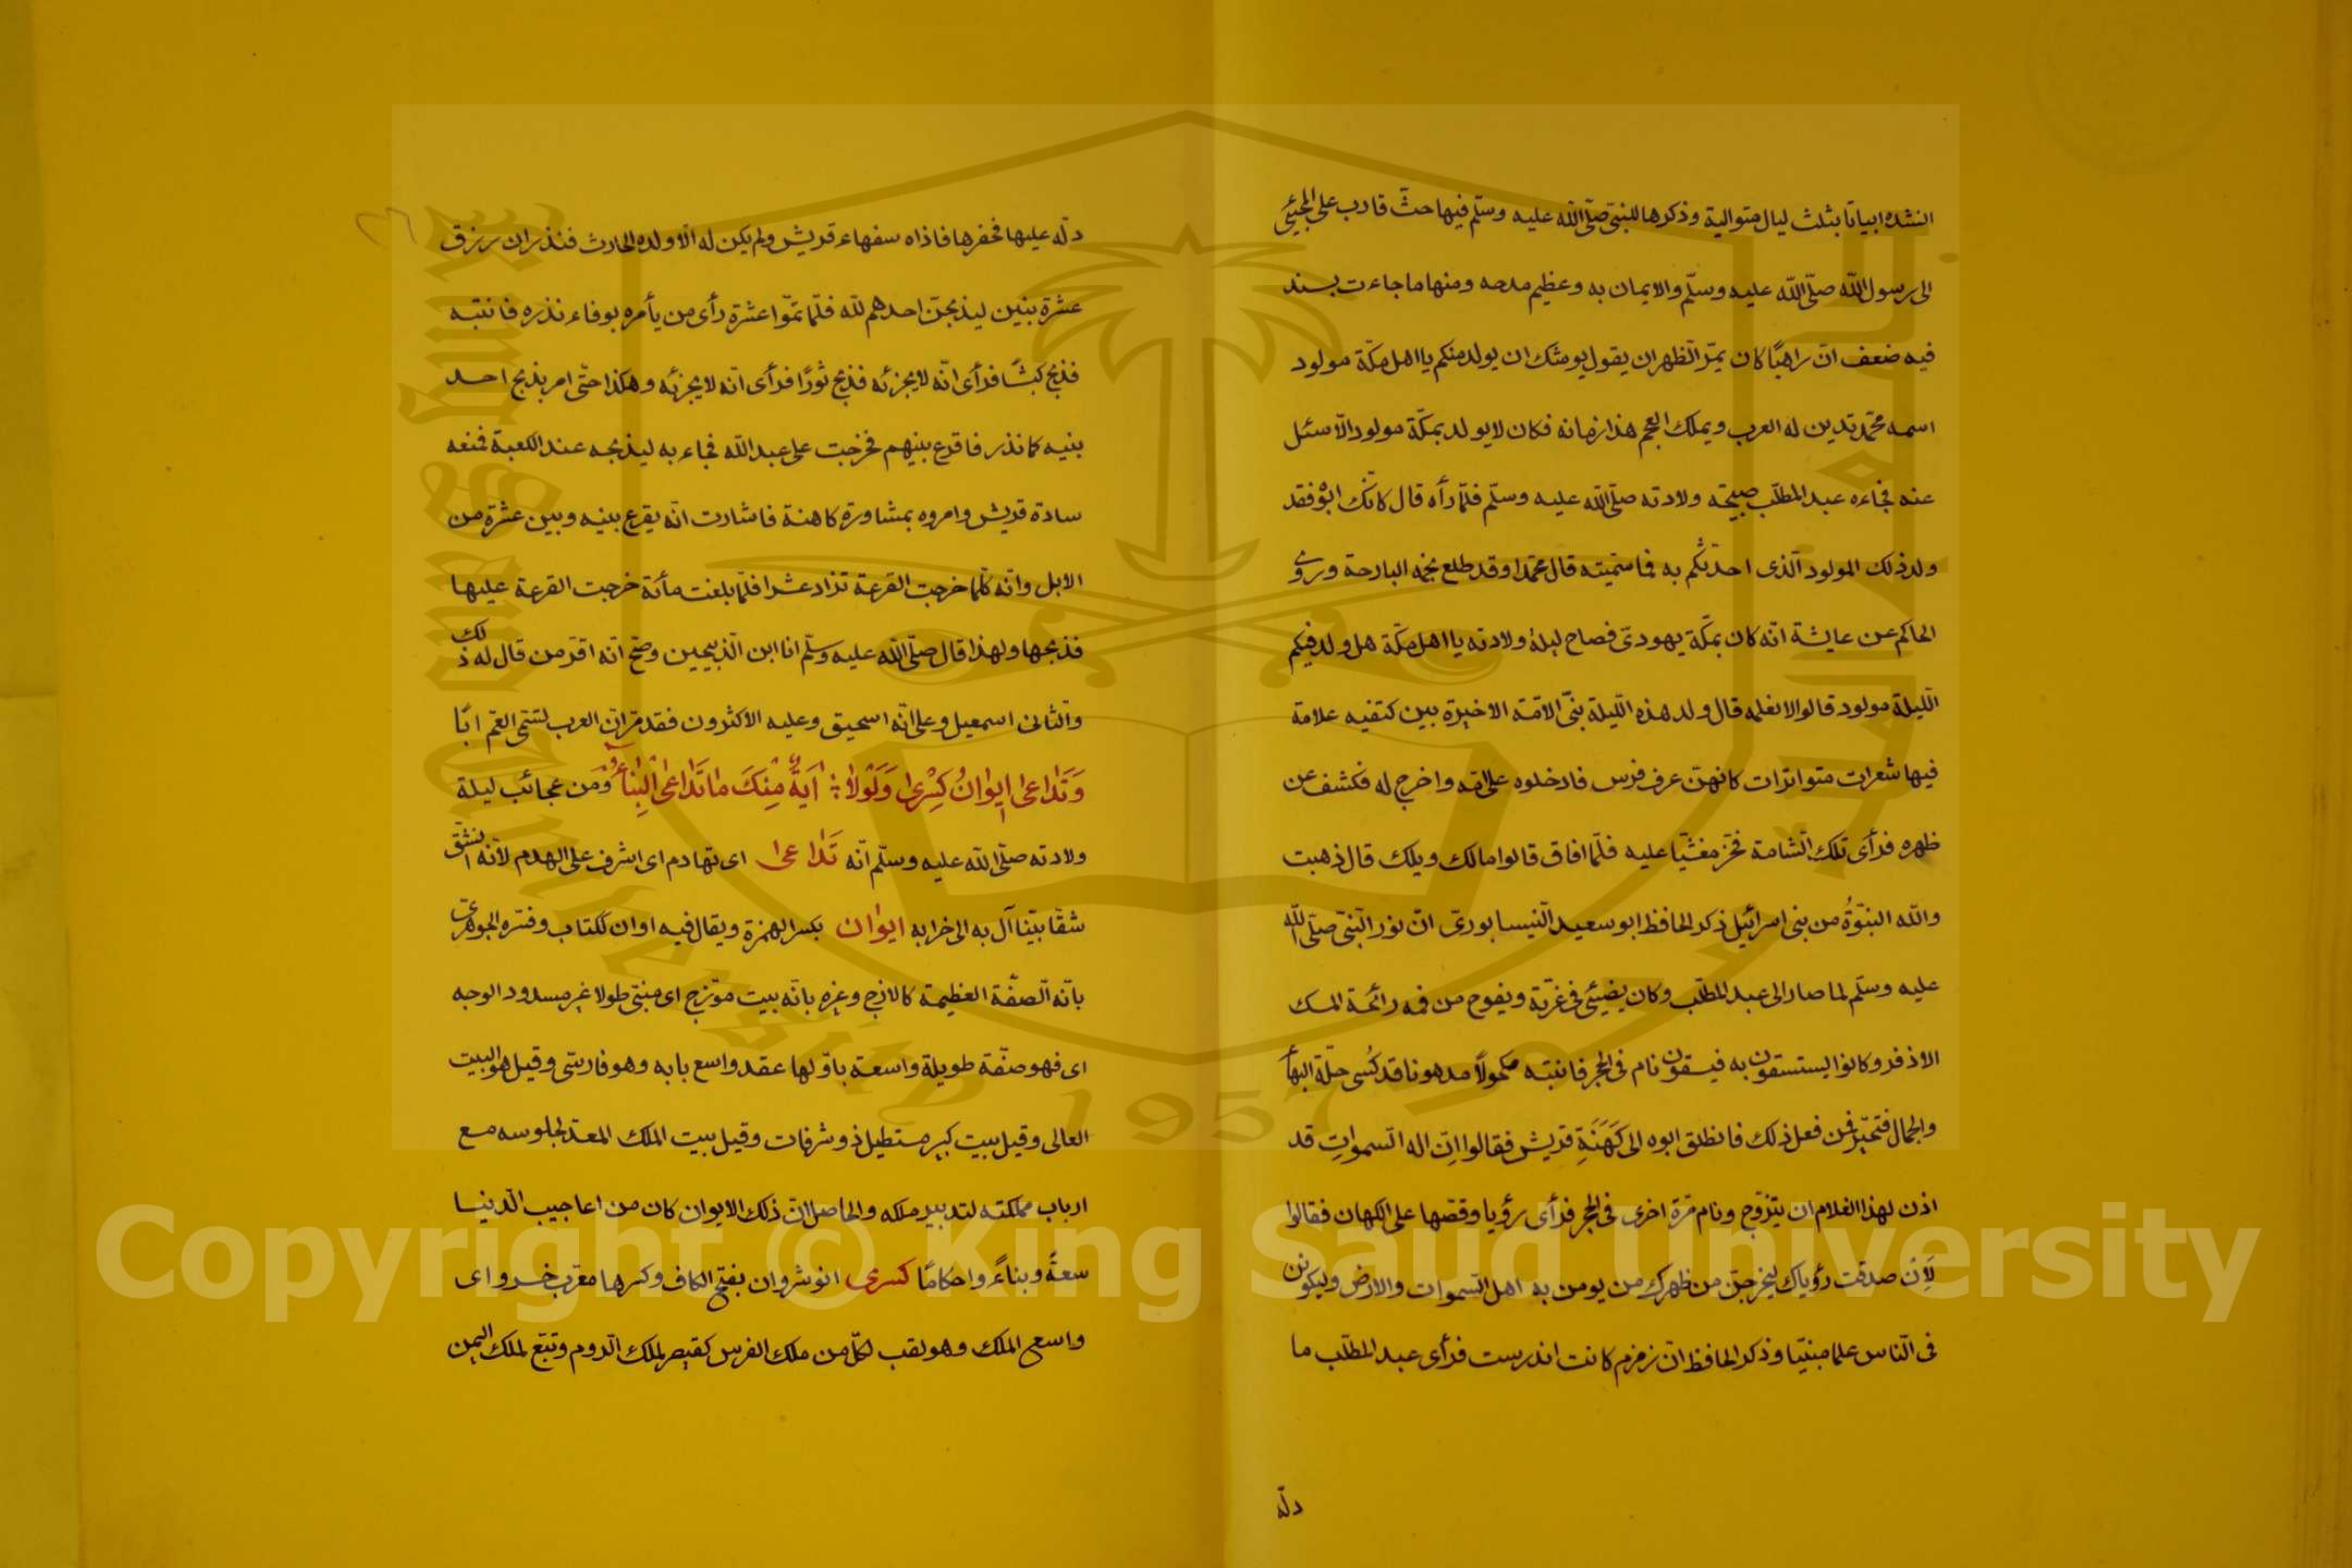 انشده ابياتا بثلث ليال متوالية وذكرها للنبي صلّى الله عليه وسلّم فيها حثّ قارب على المجيئ
الى رسول الله صلّى الله عليه وسلّم والايمان به وعظيم مدحه ومنها ما جاءت بسند
فيه ضعف انّ راهبًا كان بمرّ الظهران يقول يوشك ان يولد منكم يا اهل مكّة مولود
اسمه محمّد تدين له العرب ويملك العجم هذا زمانه فكان لا يولد بمكّة مولود الّا سئل
عنه فجاءه عبد المطّلب صبيحة ولادته صلّى الله عليه وسلّم فلمّا رأه قال كانّك ابوه فقد
ولد ذلك المولود الّذى احدّثكم به فما سمّيته قال محمّدا وقد طلع نجمه البارحة وروى
الحاكم عن عايشة انّه كان بمكّة يهودىّ فصاح ليلة ولادته يا اهل مكّة هل ولد فيكم
الّليلة مولود قالوا لا نعلمه قال ولد هذه الّليلة نبىّ الامّة الاخيرة بين كتفيه علامة
فيها شعرات متواترات كانهنّ عرف فرس فادخلوه على امّه واخرج له فكشف عن
ظهره فرأى تلك الشّامة فخرّ مغشيّا عليه فلمّا افاق قالوا مالك ويلك قال ذهبت
والله النبوّةُ من بنى اسرائيل ذكر الحافظ ابو سعيد النّيسابورىّ انّ نور النّبىّ صلّى الله
عليه وسلّم لما صار الى عبد المطّلب وكان يضيئ فى غرّته ويفوح من فمه رائحة المسك
الاذفر وكانوا يستسقون به فيسقون نام فى الحجر فانتبه مكحولًا مدهونا قد كُسى حلّة البهأ
والجمال فتحيّر فمن فعل ذلك فانطلق ابوه الى كَهَنَةِ قريش فقالوا انّ اله السّموات قد
اذن لهذا الغلام ان يتزوّج ونام مرّة اخرى فى الحجر فرأى رؤيا وقصّها على الكهان فقالوا
لَاِنْ صدقت رؤياك ليخرجنّ من ظهرك من يومن به اهل السّموات والارض وليكوننّ
فى النّاس علما مبنيّا وذكر الحافظ انّ زمزم كانت اندرست فرأى عبد المطّلب ما
دلّه
دلّه عليها فحفرها فاذاه سفهاء قريش ولم يكن له الّا ولده الحارث فنذر ان رزق
عشرة بنين ليذبحنّ احدهم لله فلمّا تمّوا عشرة رأى من يأمره بوفاء نذره فانتبه
فذبح كبشًا فرأى انّه لا يجزئه فذبح ثورًا فرأى انّه لا يجزئه وهكذا حتّى امر بذبح احد
بنيه كما نذر فاقرع بينهم فخرجت على عبد الله فجاء به ليذبحه عند الكعبة فمنعه
سادة قريش وامروه بمشاورة كاهنة فاشارت انّه يقرع بينه وبين عشرة من
الابل وانّه كلّما خرجت القرعة تزاد عشرا فلمّا بلغت مأئة خرجت القرعة عليها
فذبحها ولهذا قال صلّى الله عليه وسلّم انا ابن الذّبيحين وصحّ انّه اقرّ من قال له ذلك
والثّانى اسمعيل وعلى انّه اسحيق وعليه الاكثرون فقد مرّ انّ العرب تسمّى العمّ ابًا
وَتَدَاعَى اِيوَانُ كِسْرَى وَلَوْلَا ؛ اٰيَةٌ مِنْكَ مَا تَدَاعَى الْبِنَاءُ ومن عجائب ليلة
ولادته صلّى الله عليه وسلّم انّه تَدَاعَى اى تهادم اى اشرف على الهدم لانّه انشقّ
شقّا بيّنا آل به الى خرابه ايوان بكسر الهمزة ويقال فيه اوان ككتاب وفسّره الجوهرىّ
بانّه الصفّة العظيمة كالازج وغيره بانّه بيت مؤزّج اى مبنىّ طولا غير مسدود الوجه
اى فهو صفّة طويلة واسعة باوّلها عقد واسع بابه وهو فارسّى وقيل هو البيت
العالى وقيل بيت كبير مستطيل ذو شرفات وقيل بيت الملك المعدّ لجلوسه مع
ارباب مملكته لتدبير ملكه والحاصل انّ ذلك الايوان كان من اعاجيب الدّنيا
سعةً وبناءً واحكامًا كسرى انوشروان بفتح الكاف وكسرها معرّب خسرو اى
واسع الملك وهو لقب لكلّ من ملك الفرس كقيصر لملك الرّوم وتبّع لملك اليمن